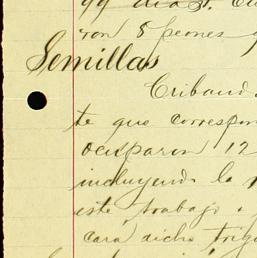 99 dias. Cu
ron 8 peones y
Semillas
Cribando
te que correspon
ocuparon 12
incluyendo la
este trabajo y
cará dicho trigo